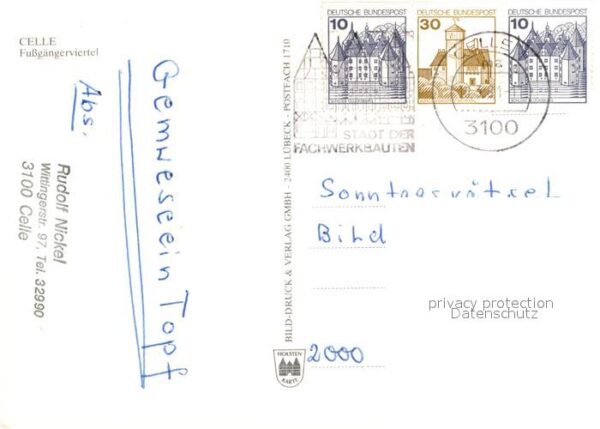 CELLE
Fußgängerviertel
Abs.
Rudolf Nickel
Wittingerstr. 97, Tel. 32990
3100 Celle
Gemweseein Topf
BILD-DRUCK & VERLAG GMBH - 2400 LÜBECK - POSTFACH 1710
HOLSTEN
KARTE
10
DEUTSCHE BUNDESPOST
30
DEUTSCHE BUNDESPOST
10
DEUTSCHE BUNDESPOST
STADT DER
FACHWERKBAUTEN
CELLE
3100
Sonntasrätsel
Bild
2000
privacy protection
Datenschutz